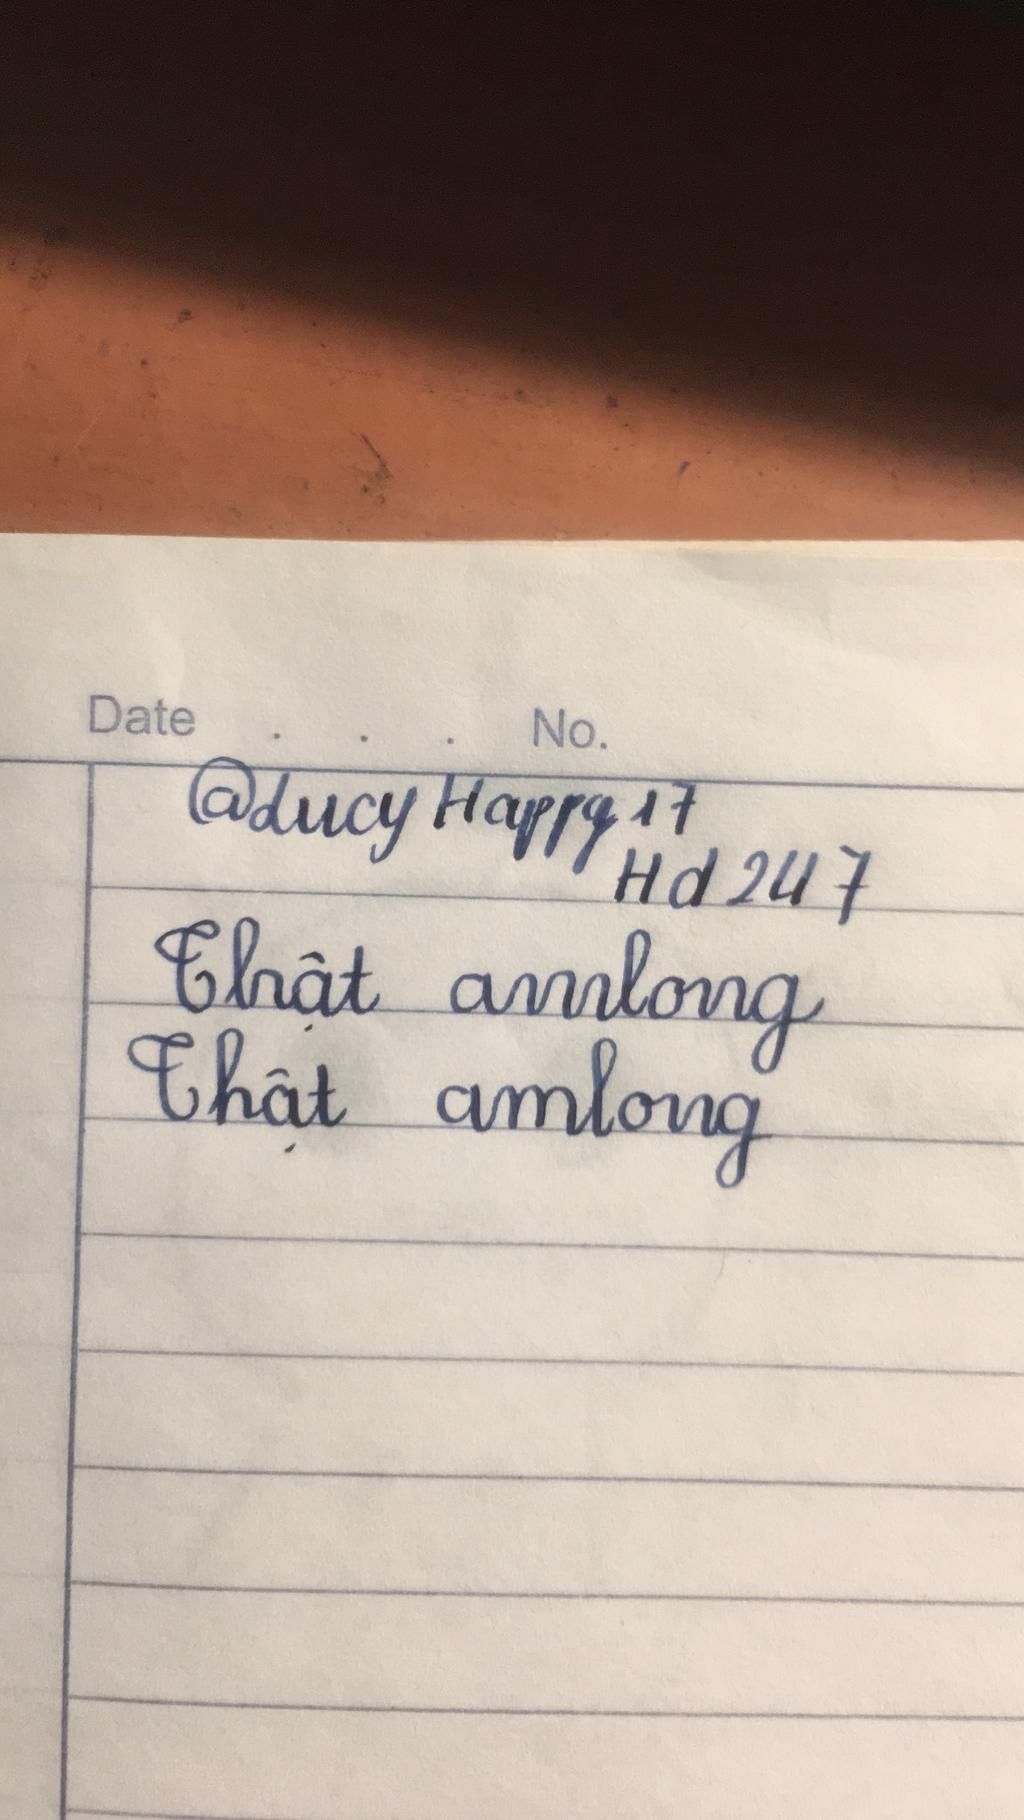 Date . . . No.
@Lucy Happy 17
Hd 247
Thật amlong
Thật amlong